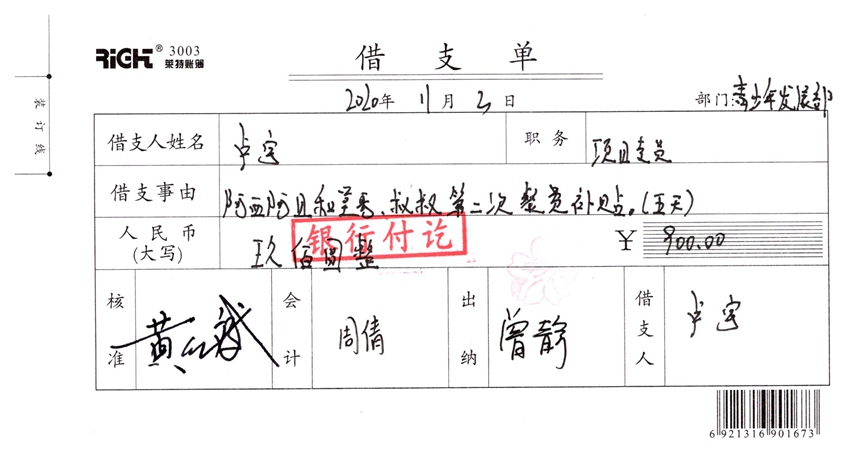 RiGHT® 3003
莱特账簿
借支单
2020年 11月 3日
部门:青少年发展部
装订线
借支人姓名 卢宇 职务 项目专员
借支事由 阿西阿且和呈秀、叔叔第二次整员补贴。(五天)
人民币(大写) 玖佰圆整 ¥ 900.00
银行付讫
核准 会计 周倩 出纳 曾静 借支人 卢宇
6 921316 901673